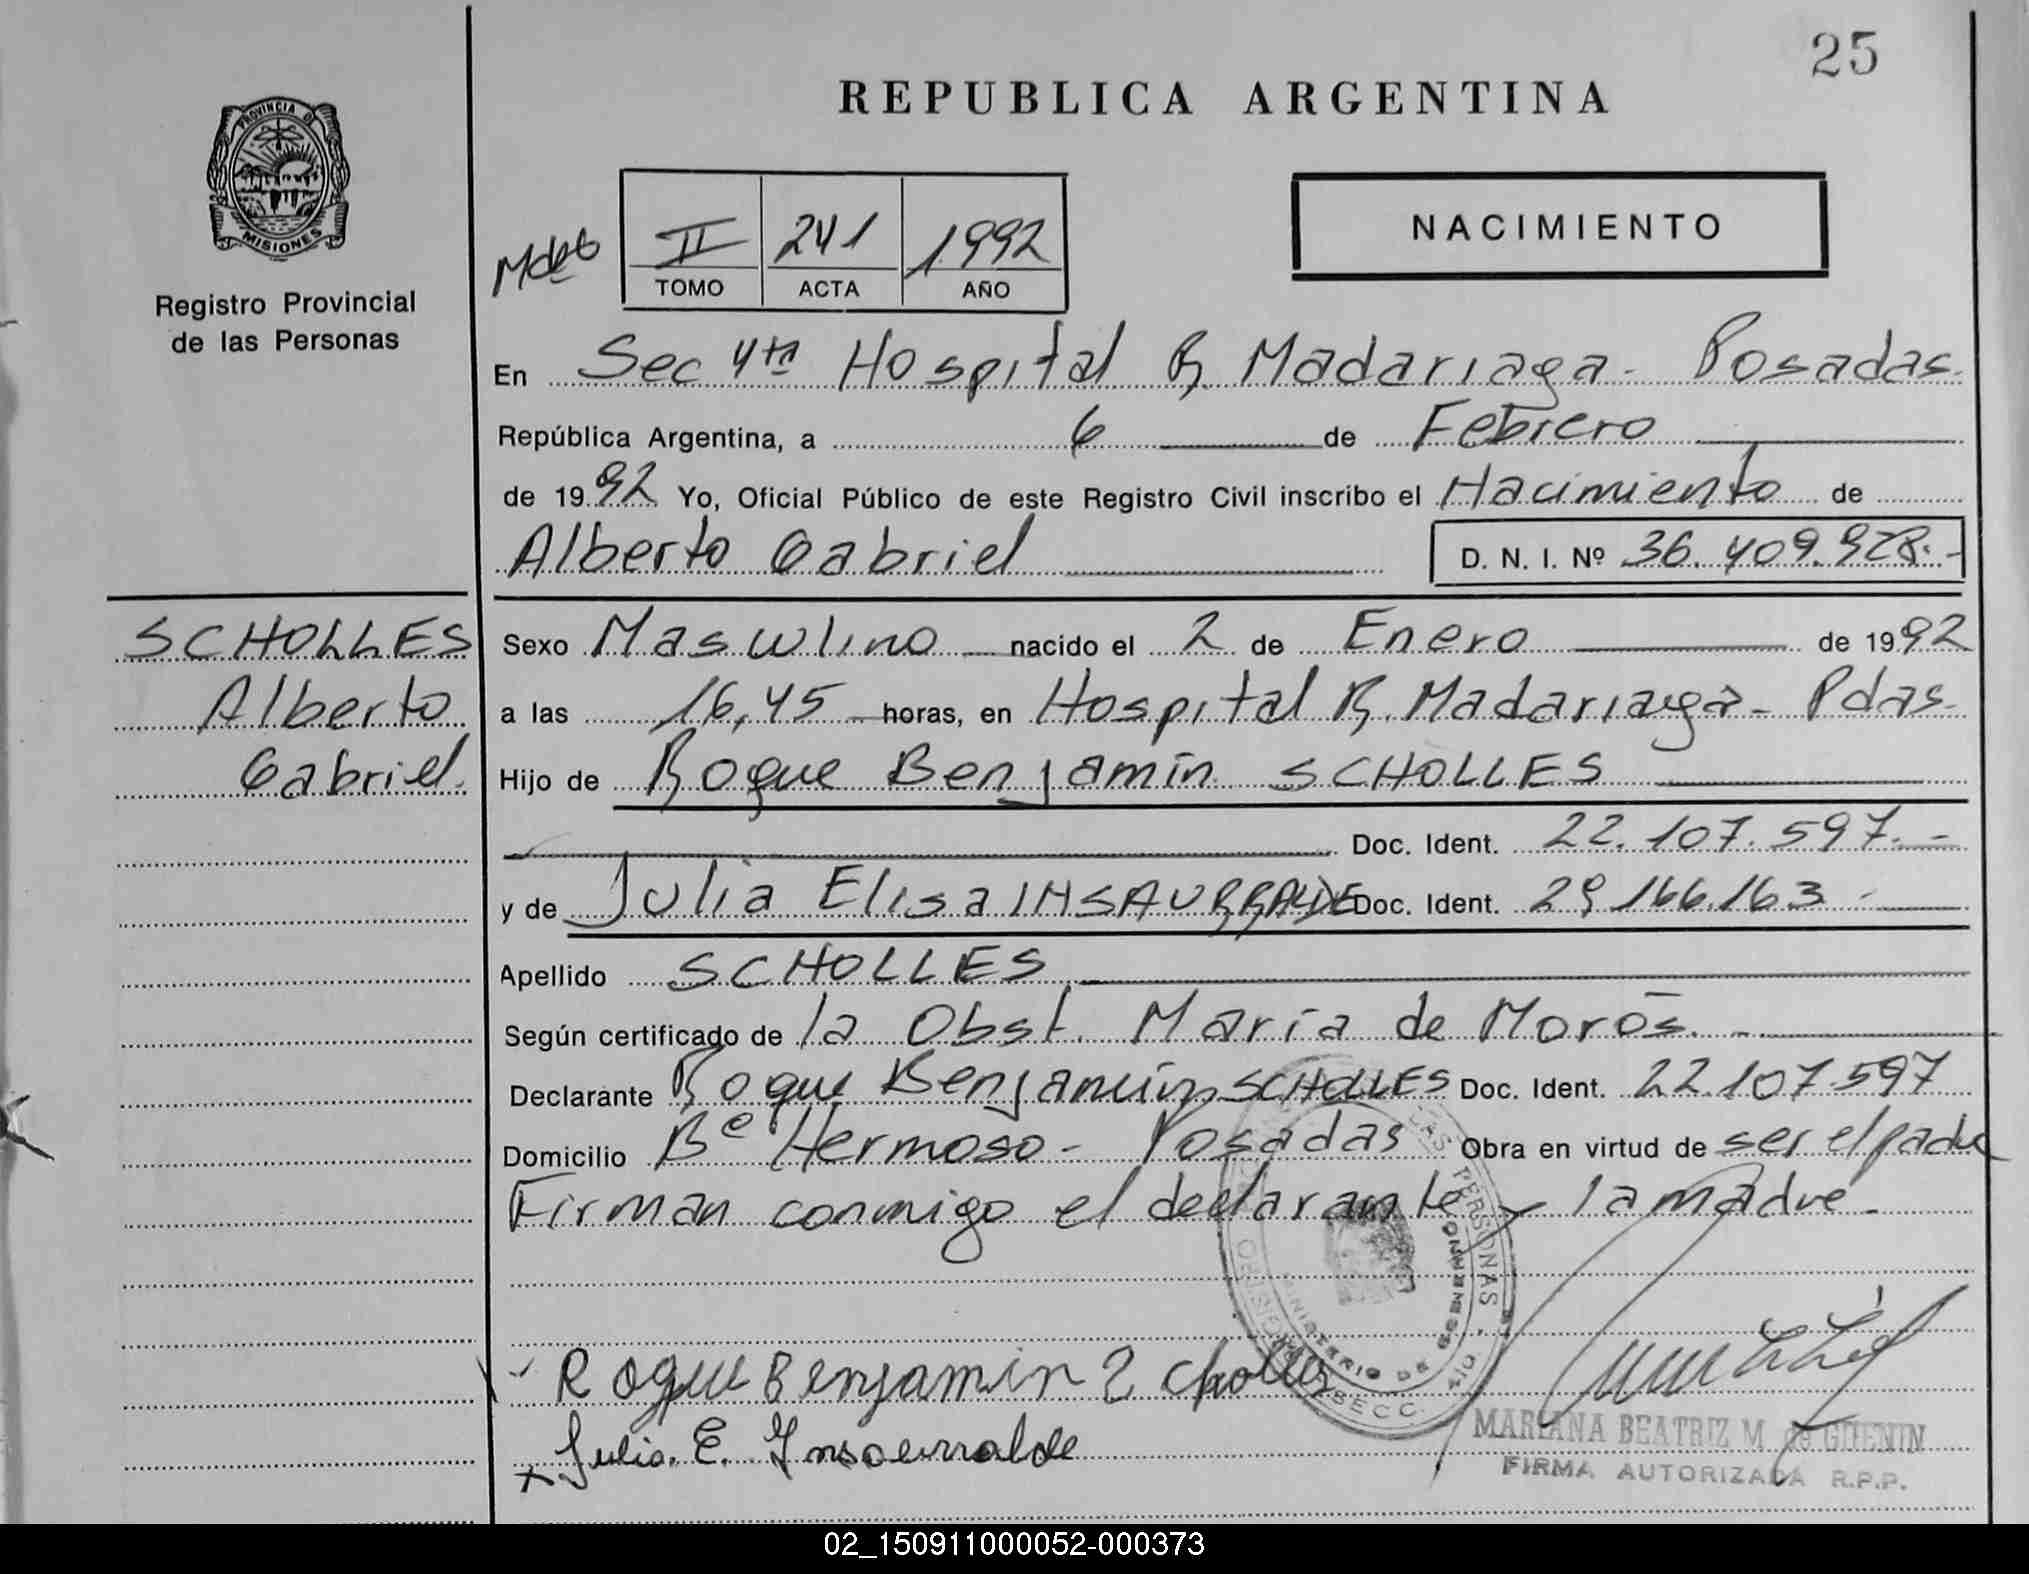 25
REPUBLICA ARGENTINA
PROVINCIA DE
MISIONES
Registro Provincial
de las Personas
NACIMIENTO
II 241 1992
TOMO ACTA AÑO
En Sec 4ta Hospital R. Madariaga - Posadas.
República Argentina, a 6 de Febrero
de 1992 Yo, Oficial Público de este Registro Civil inscribo el Nacimiento de
Alberto Gabriel D. N. I. Nº 36.409.928.-
SCHOLLES
Alberto
Gabriel.
Sexo Masculino nacido el 2 de Enero de 1992
a las 16,45 horas, en Hospital R. Madariaga - Pdas.
Hijo de Roque Benjamín SCHOLLES
Doc. Ident. 22.107.597.-
y de Julia Elisa INSAURRALDE Doc. Ident. 29.166.163.-
Apellido SCHOLLES
Según certificado de la Obst. María de Morós.-
Declarante Roque Benjamín SCHOLLES Doc. Ident. 22.107.597
Domicilio Bº Hermoso - Posadas Obra en virtud de ser el padre
Firman conmigo el declarante y la madre.
LAS PERSONAS
MINISTERIO DE
SECC. 4TO
Roque Benjamin Scholles
Julia. E. Insaurralde
MARIANA BEATRIZ M. de GUENIN
FIRMA AUTORIZADA R.P.P.
02_150911000052-000373